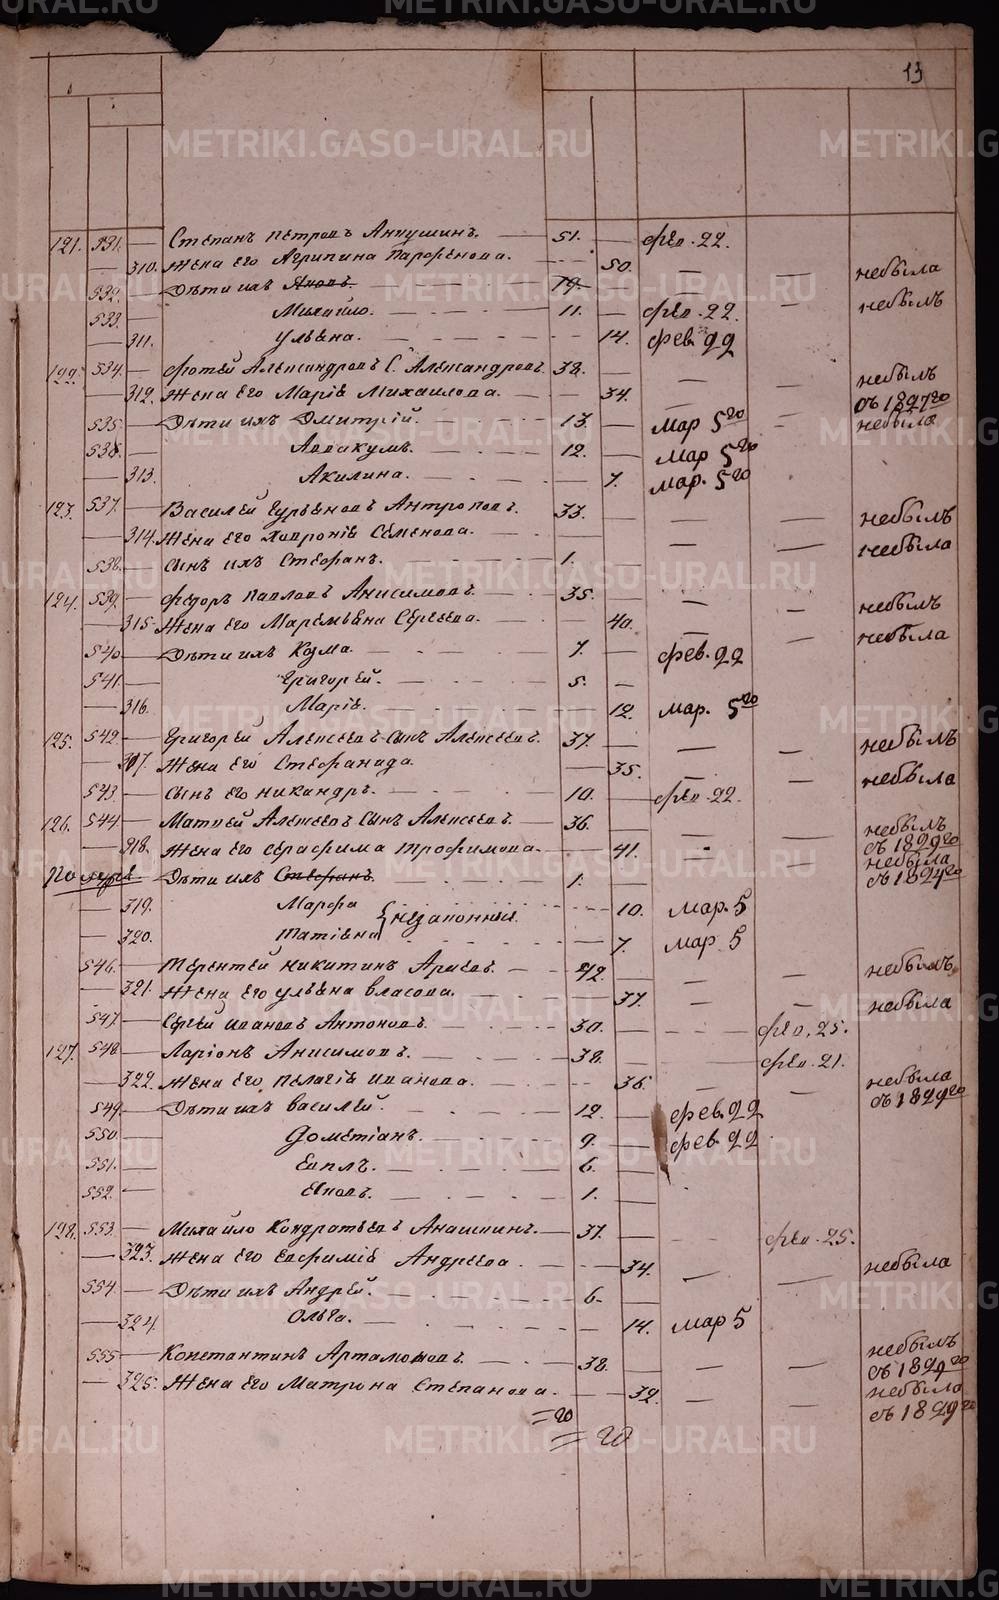 13
121. 531. — Степанъ Петровъ Аннушинъ. — 51. — фев. 22.
— 310. Жена его Агрипина Парфенова. — — 50. — — небыла
532. — Дѣти ихъ Яковъ. — 19. — — небылъ
533. — Михайло. — 11. — фев. 22.
— 311. Ульяна. — 14. фев. 22
122. 534. — Фотей Александровъ С. Александровъ. 38. — — небылъ
— 312. Жена его Марiя Михаилова. — 34. — съ 1827го
535. — Дѣти ихъ Дмитрiй. — 13. — мар 5го — небыла
536. — Аввакумъ. — 12. — мар 5го
— 313. Акилина. — 7. мар. 5го
123. 537. — Василей Гурьяновъ Антроповъ. 33. — — небылъ
— 314. Жена его Ховронiя Семенова. — — — небыла
538. — сынъ ихъ Стефанъ. — 1. —
124. 539. — Федоръ Павловъ Анисимовъ. — 35. — — небылъ
— 315. Жена его Маремьяна Сергеева. — 40. — — небыла
540. — Дѣти ихъ Козма. — 7. — фев. 22
541. — Григорей. — 5. —
— 316. Марiя. — 12. мар. 5го
125. 542. — Григорей Алексеевъ сынъ Алексеевъ. 37. — — — небылъ
— 317. Жена его Стефанида. — 35. — — небыла
543. — сынъ его Никандръ. — 10. — фев. 22.
126. 544. — Матвей Алексеевъ сынъ Алексеевъ. — 36. — — — небылъ
съ 1829го
— 318. Жена его Серафима Трофимова. — 41. — небыла
съ 1824го
Дѣти ихъ Стефанъ. — 1. —
— 319. Марфа — 10. мар. 5
— 320. Татiяна } незаконныи. — 7. мар. 5
546. — Терентей Никитинъ Арпевъ. — 42. — — — небылъ
— 321. Жена его Ульяна Власова. — 37. — — небыла
547. — Сергей Ивановъ Антоновъ. — 30. — — фев. 25.
127. 548. — Ларiонъ Анисимовъ. — 38. — — фев. 21.
— 322. Жена его Пелагiя Иванова. — 36. — — небыла
съ 1829го
549. — Дѣти ихъ Василей. — 12. — фев. 22
550. — Дометiанъ. — 9. — фев. 22
551. — Евплъ. — 6. —
552. — Яковъ. — 1. —
128. 553. — Михайло Кондратьевъ Анашкинъ. — 37. — — фев. 25.
— 323. Жена его Евфимiя Андреева. — 34. — — небыла
554. — Дѣти ихъ Андрей. — 6. —
— 324. Ольга. — 14. мар 5
555. — Константинъ Артамоновъ. — 38. — — — небылъ
съ 1829го
— 325. Жена его Матрона Степанова. — 32. — — небыла
съ 1829го
= 20
= 20
METRIKI.GASO-URAL.RU